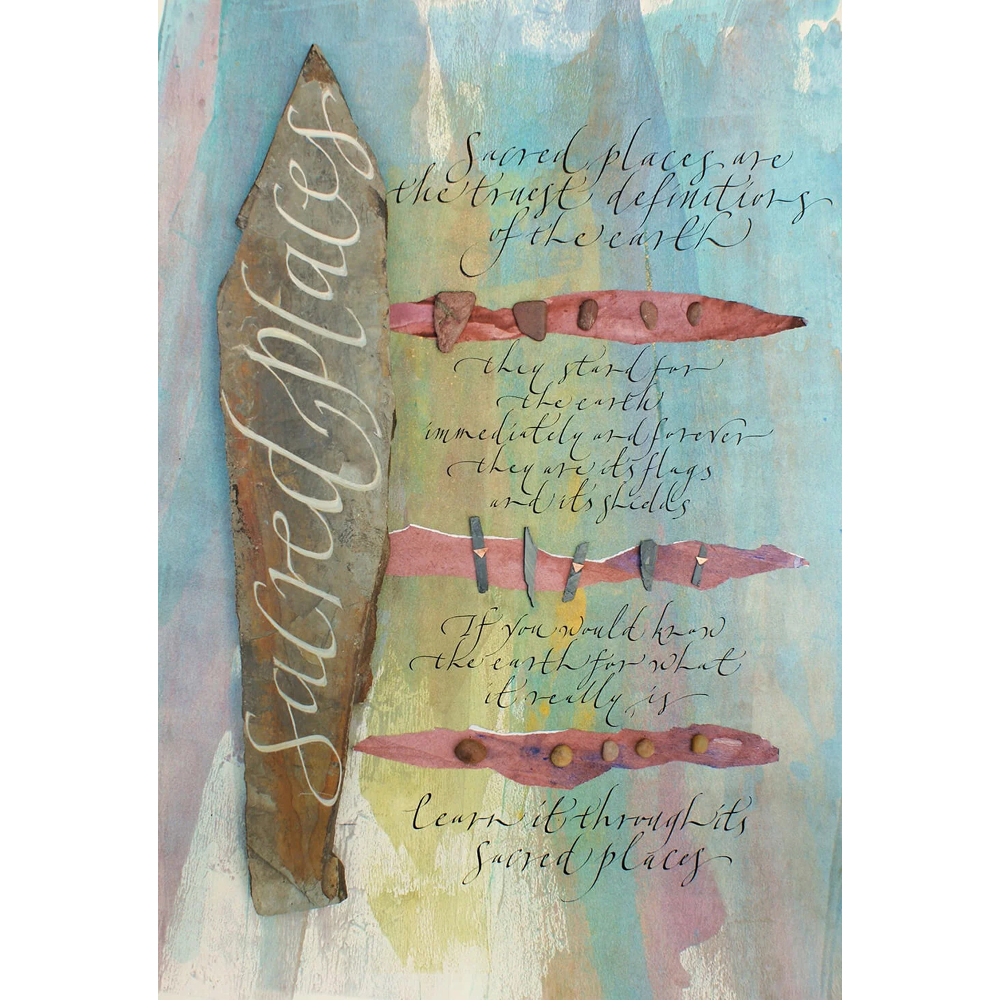 sacred places
Sacred places are
the truest definitions
of the earth
they stand for
the earth
immediately and forever
they are its flags
and its shields
If you would know
the earth for what
it really is
learn it through its
sacred places